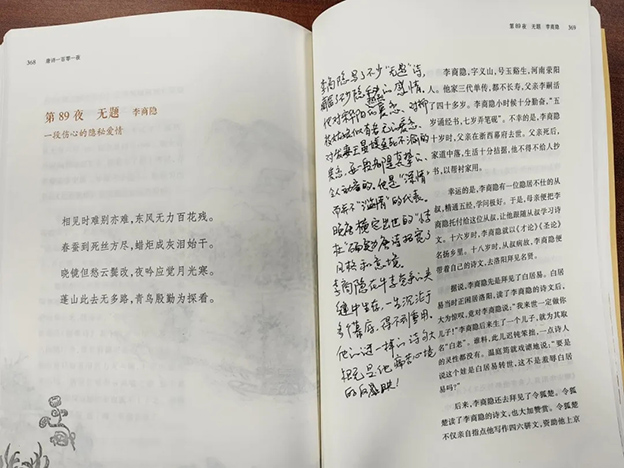 368 唐诗一百零一夜
第89夜 无题 李商隐
一段伤心的隐秘爱情
相见时难别亦难，东风无力百花残。
春蚕到死丝方尽，蜡炬成灰泪始干。
晓镜但愁云鬓改，夜吟应觉月光寒。
蓬山此去无多路，青鸟殷勤为探看。
第89夜 无题 李商隐 369
李商隐写了不少“无题”诗，
感情，
他对宋华阳
对
真挚
全心动容的，他是“深情”
而并不“滥情”的代表。
晚唐横空出世的“李
唐诗拓宽了
风格和意境。
李商隐在牛李党争的夹
缝中生存，一生沉沦于
幕府，得不到重用，
他的谜一样的诗句大
概也是他痛苦心境
的反映！
李商隐，字义山，号玉谿生，河南荥阳
人。他家三代单传，都不长寿，父亲李嗣活
了四十多岁。李商隐小时候十分勤奋，“五
岁诵经书，七岁弄笔砚”。不幸的是，李商隐
十岁时，父亲在浙西幕府去世。父亲死后，
家道中落，生活十分拮据，他不得不给人抄
书，以帮衬家用。
幸运的是，李商隐有一位隐居不仕的从
叔，精通五经，学问极好。于是，母亲便把李
商隐托付给这位从叔，让他跟随从叔学习诗
文。十六岁时，李商隐就以《才论》《圣论》
名扬乡里。十八岁时，从叔病故，李商隐便
带着自己的诗文，去洛阳拜见名贤。
据说，李商隐先是拜见了白居易。白居
易当时正闲居洛阳，读了李商隐的诗文后，
大为惊叹，竟对李商隐说：“我来世一定做你
儿子！”李商隐后来生了一个儿子，就为其取
名“白老”。谁料，此儿迟钝笨拙，一点诗人
的灵性都没有。温庭筠就戏谑地说：“要是
说这个娃是白居易转世，这不是羞辱白居
易吗？”
后来，李商隐还去拜见了令狐楚。令狐
楚读了李商隐的诗文，也大加赞赏。令狐楚
不仅亲自指点他写作四六骈文，资助他上京